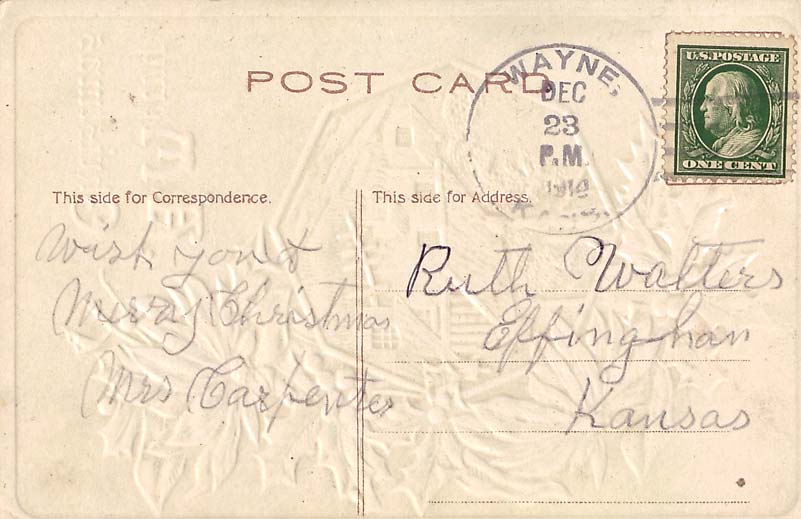 POST CARD
WAYNE,
DEC
23
P.M.
U.S. POSTAGE
ONE CENT
This side for Correspondence.
This side for Address.
Wish you a
Merry Christmas
Mrs Carpenter
Ruth Walters
Effingham
Kansas